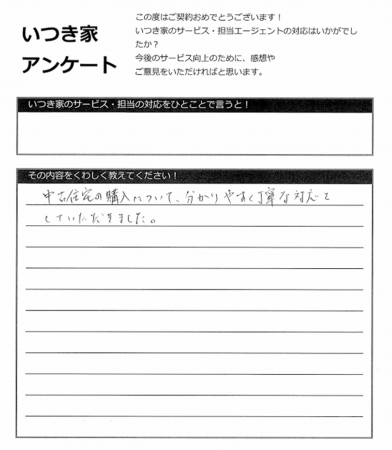 いつき家
アンケート
この度はご契約おめでとうございます！
いつき家のサービス・担当エージェントの対応はいかがでし
たか？
今後のサービス向上のために、感想や
ご意見をいただければと思います。
いつき家のサービス・担当の対応をひとことで言うと！
その内容をくわしく教えてください！
中古住宅の購入について、分かりやすく丁寧な対応を
していただきました。